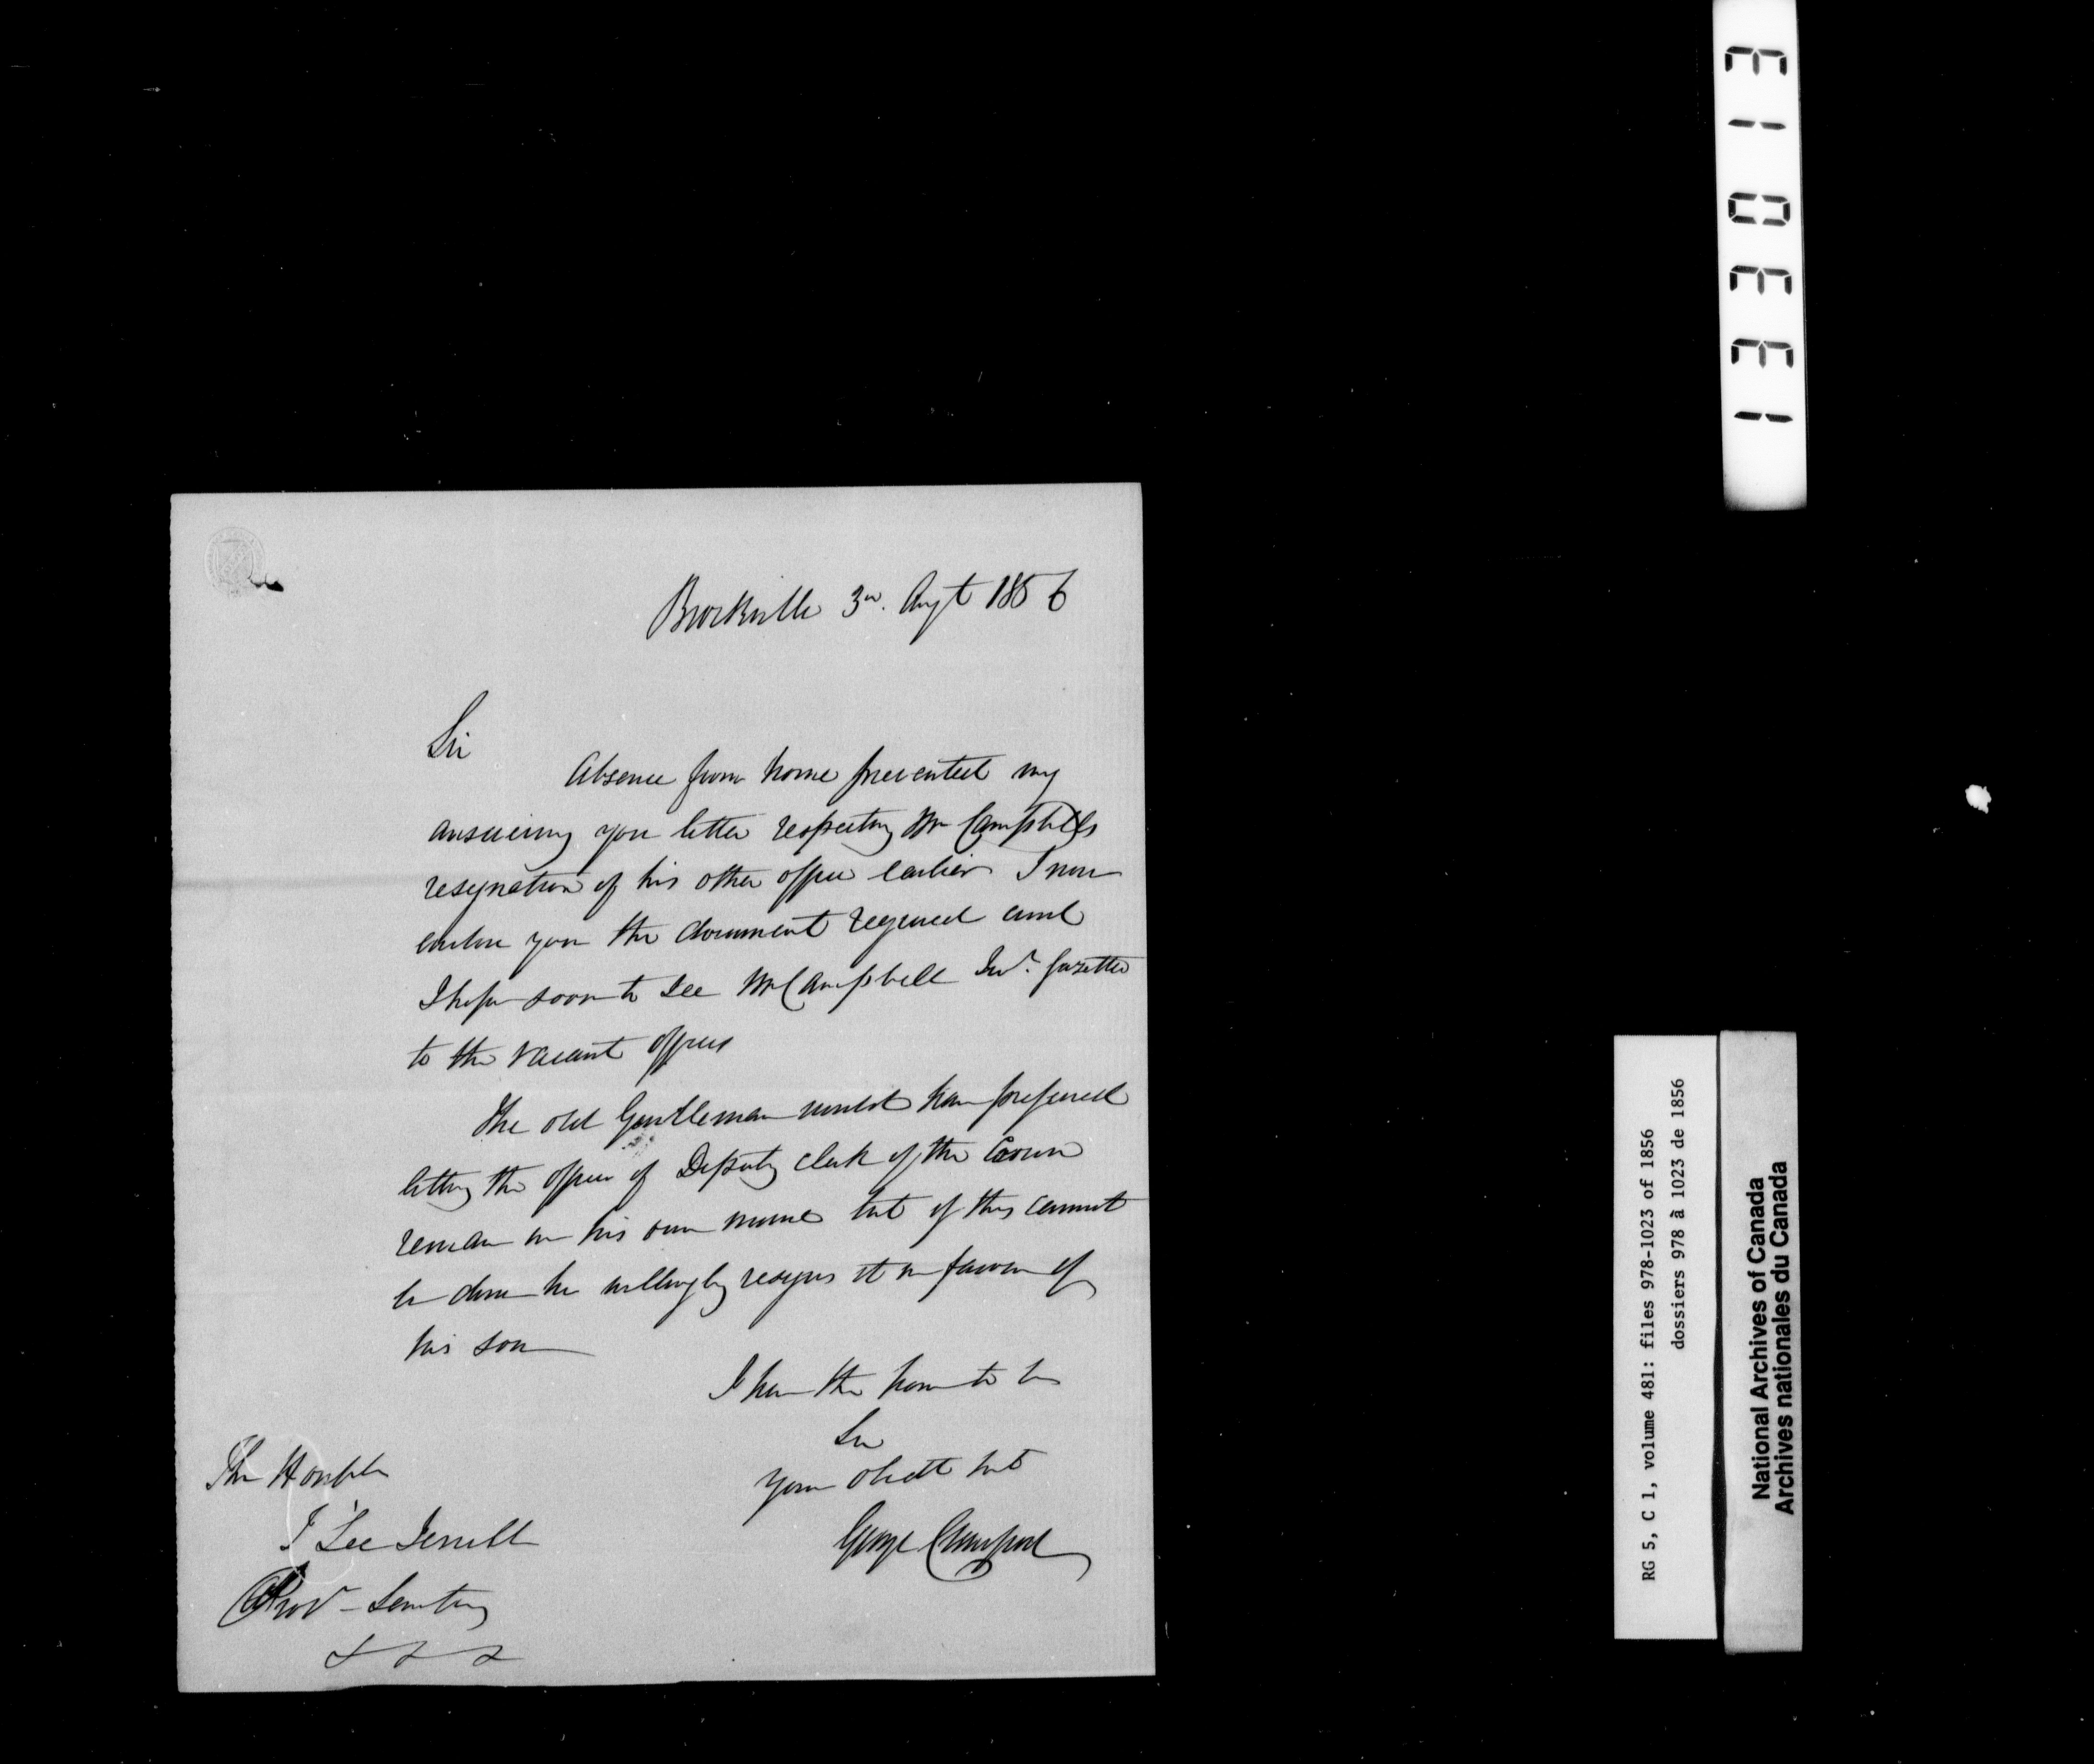 Brockville 3rd. Augt 1856
Sir
Absence from home prevented my
answering your letter respecting Mr Campbells
resignation of his other office earlier I now
enclose you the document required and
I hope soon to see Mr Campbell Junr. Gazetted
to the vacant offices
The old Gentleman would have preferred
letting the office of Deputy clerk of the Crown
remain in his own name but if this cannot
be done he willingly resigns it in favour of
his son
I have the honor to be
Sir
your obedt sert
George Crawford
The Honble
T Lee Terrill
Prov - Secretary
& & &
E10331
RG 5, C 1, volume 481: files 978-1023 of 1856
dossiers 978 à 1023 de 1856
National Archives of Canada
Archives nationales du Canada